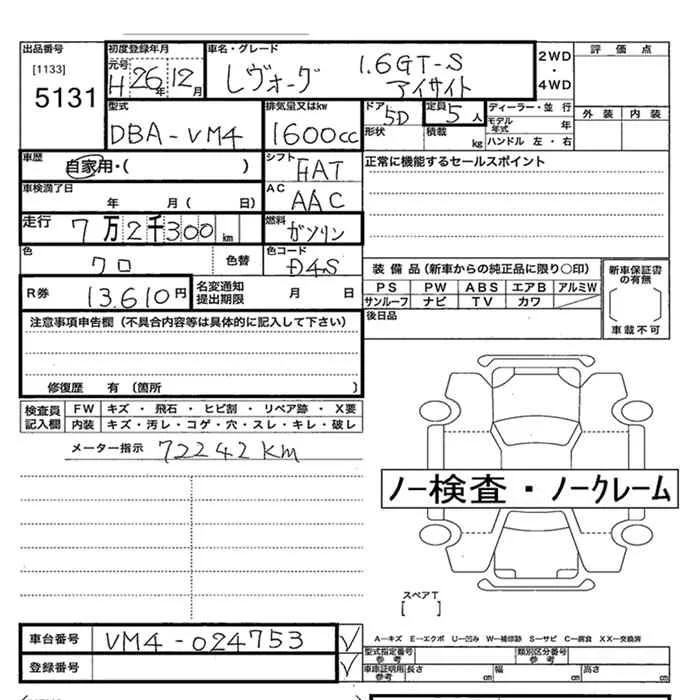 出品番号 初度登録年月 車名・グレード 評価点
[1133] 元号 2WD
5131 H 26年 12月 レヴォーグ 1.6GT-S アイサイト ・ 4WD
外装 内装
型式 排気量又はkw ドア 定員 ディーラー・並行
DBA-VM4 1600cc 5D 5人 モデル年式 年
形状 積載 kg ハンドル 左・右
車歴 自家用・( ) シフト FAT 正常に機能するセールスポイント
車検満了日 年 月( 日) AC AAC
走行 7万2千300km 燃料 ガソリン
色 クロ 色替 色コード D4S
装備品(新車からの純正品に限り○印) 新車保証書の有無
R券 13,610円 名変通知提出期限 月 日 PS PW ABS エアB アルミW
サンルーフ ナビ TV カワ
注意事項申告欄(不具合内容等は具体的に記入して下さい) 後日品 車載不可
修復歴 有(箇所 )
検査員記入欄 FW キズ・飛石・ヒビ割・リペア跡・X要
内装 キズ・汚レ・コゲ・穴・スレ・キレ・破レ
メーター指示 72242km
ノー検査・ノークレーム
スペアT
[ ]
車台番号 VM4-024753 ✓ A-キズ E-エクボ U-凹み W-補修跡 S-サビ C-腐食 XX-交換済
型式指定番号 参考 類別区分番号 参考
登録番号 ✓ 車庫証明用参考 長さ cm 幅 cm 高さ cm